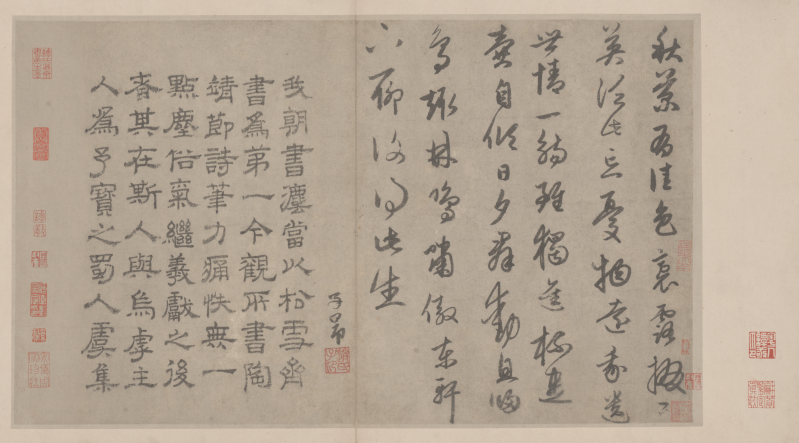 秋菊有佳色裛露掇其
英汎此忘憂物遠我遺
世情一觴雖獨進杯盡
壺自傾日夕群動息歸
鳥趨林鳴嘯傲東軒
下聊復得此生
子昂
我朝書灋當以松雪齊
書爲第一今觀所書陶
靖節詩筆力痛快無一
點塵俗氣繼羲獻之後
者其在斯人與烏虖主
人爲予寶之蜀人虞集